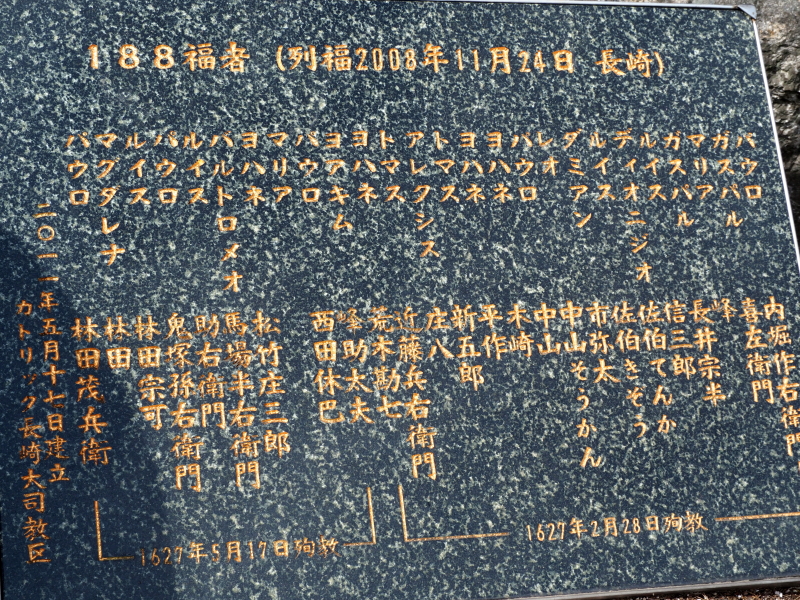 188福者 (列福2008年11月24日 長崎)
パウロ 内堀作右衛門
ガスパル 喜左衛門
マリア 峰
ガスパル 長井宗半
ルイス 信三郎
ディオニジオ 佐伯てんか
ルイス 佐伯きぞう
ダミアン 市弥太
レオ 中山そうかん
パウロ 中山
ヨハネ 木崎
ヨハネ 平作
トマス 新五郎
アレクシス 庄八
トマス 近藤兵右衛門
ヨハネ 荒木勘七
ヨアキム 峰助太夫
パウロ 西田休巴
マリア
ヨハネ 松竹庄三郎
バルトロメオ 馬場半右衛門
ルイス 助右衛門
パウロ 鬼塚孫右衛門
ルイス 林田宗可
マグダレナ 林田
パウロ 林田茂兵衛
1627年2月28日殉教
1627年5月17日殉教
二〇一一年五月十七日建立
カトリック長崎大司教区